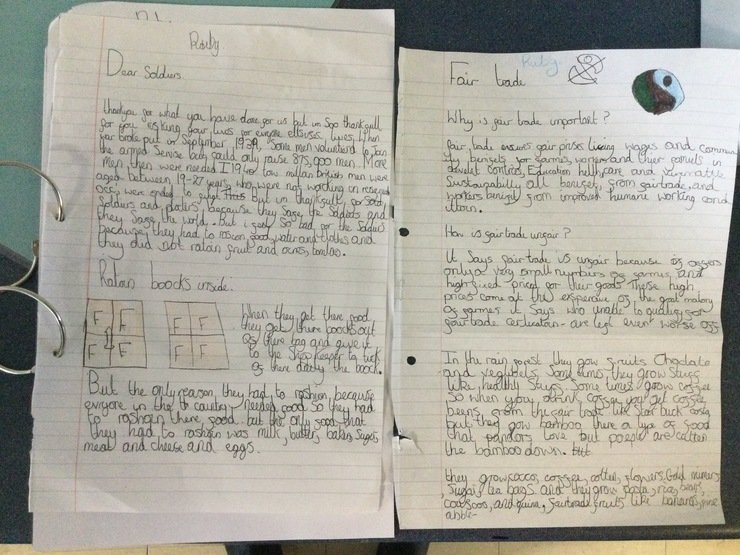 Ruby
Dear Soldiers
thankyou for what you have done for us but im Soo thankfull
for you risking your lives for evryone elsises lives. When
war broke out in September 1939, Some men volunteerd to Join
the armed Servise body could only raise 875,000 men. More
men then were needed I 1940 tow millan british men were
aged between 19-27 years, who were not working on
But im thankfull for
Soldurs and because they Save the and
they Save the world. But i feel So bad for the Soldurs
because they had to rashion food, water and cloths and
they did not rashon fruit and
Rashon boocks inside.
F F F F
F F F F
When they get there food
they get there boocks out
of there bag and give it
to the Shop Keeper to tick
of there the boock.
But the only reason they had to rashion because
evryone in the country needed food So they had
to rashoin there food. but the only food that
they had to rashoin was milk, butter, bakon, Sugar,
meat and cheese and eggs.
Ruby
Fair trade
Why is fair trade important?
fair trade ensures fair prises living wages and commun
ty benefits for farmers, workers and their families in
Education helth care and
Sustainability all benefit from fairtrade, and
workers benefit from improved humane working cond
How is fair trade unfair?
It Says fair trade is unfair because it offers
only a very small numburs of farmers, and
high fixed priced for their goods These high
prices come at the expencive of the great
of farmers it Says who unable to qualify for
fair trade are left even worse off
In the rain forest they grow fruits Choclate
and Some times they grow Stuff
like healthy Stuff Some times grow coffee
So when you drink coffey you get coffee
beens from the fair trade like Star buck
but they grow bamboo there a type of food
that pandors love but poeple are cutten
the bamboo down.
they grow coffee, cotten, flowers, Gold
Sugar, tea bags and they grow
and fairtrade fruits like bananas, pine